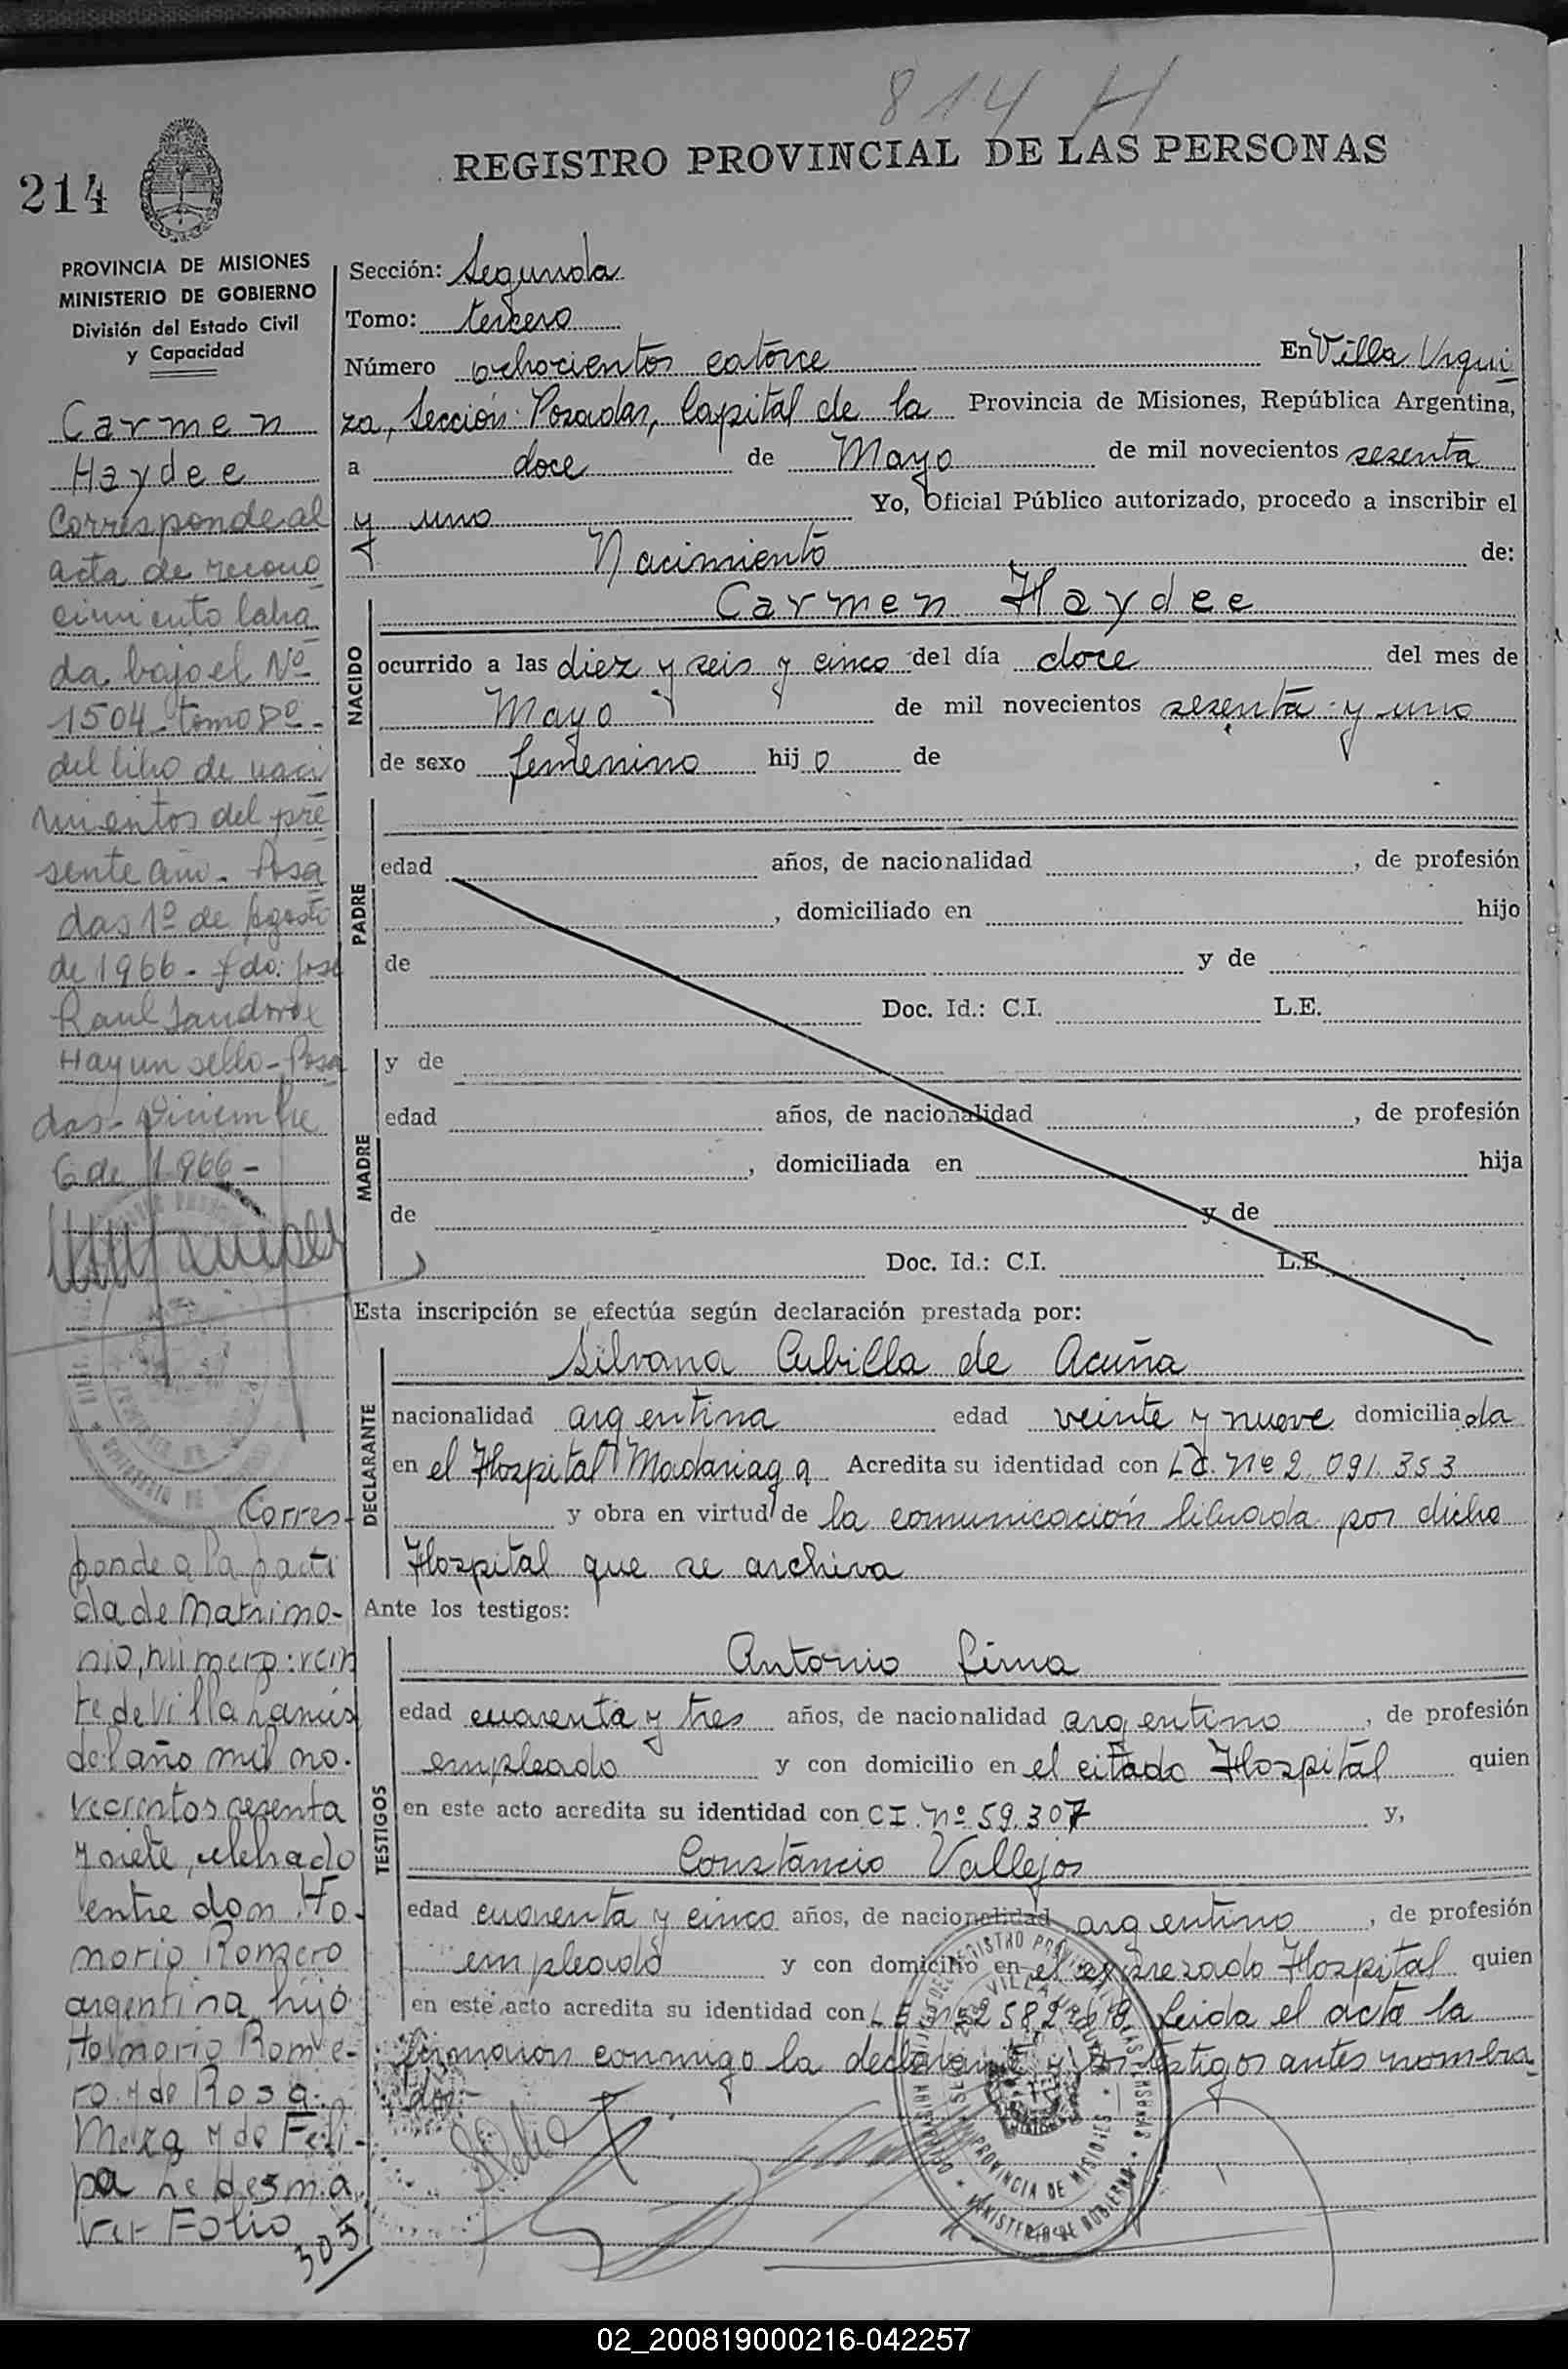 814 H
214
REGISTRO PROVINCIAL DE LAS PERSONAS
PROVINCIA DE MISIONES
MINISTERIO DE GOBIERNO
División del Estado Civil
y Capacidad
Carmen
Haydee
Corresponde al
acta de recono
cimiento labra
da bajo el Nº
1504 tomo 8º
del libro de naci
mientos del pre
sente año - Posa
das 1º de Agosto
de 1966 - fdo: José
Raul Sandoval
Hay un sello - Posa
das - Diciembre
6 de 1966 -
Corres-
ponde a la parti
da de Matrimo-
nio, número: vein
te de Villa Lanús
del año mil no-
vecientos sesenta
y siete, celebrado
entre don Ho-
norio Romero
argentina hijo
Honorio Rome-
ro y de Rosa
Meza y de Feli-
pa Ledesma
Ver Folio
305
Sección: Segunda
Tomo: tercero
Número ochocientos catorce En Villa Urqui
za, Sección Posadas, Capital de la Provincia de Misiones, República Argentina,
a doce de Mayo de mil novecientos sesenta
y uno Yo, Oficial Público autorizado, procedo a inscribir el
Nacimiento de:
Carmen Haydee
NACIDO
ocurrido a las diez y seis y cinco del día doce del mes de
Mayo de mil novecientos sesenta y uno
de sexo femenino hij o de
PADRE
edad años, de nacionalidad , de profesión
, domiciliado en hijo
de y de
Doc. Id.: C.I. L.E.
MADRE
y de
edad años, de nacionalidad , de profesión
, domiciliada en hija
de y de
Doc. Id.: C.I. L.E.
Esta inscripción se efectúa según declaración prestada por:
DECLARANTE
Silvana Cubilla de Acuña
nacionalidad argentina edad veinte y nueve domiciliada
en el Hospital Madariaga Acredita su identidad con L.C. Nº 2.091.353
y obra en virtud de la comunicación librada por dicho
Hospital que se archiva
Ante los testigos:
TESTIGOS
Antonio Lima
edad cuarenta y tres años, de nacionalidad argentino , de profesión
empleado y con domicilio en el citado Hospital quien
en este acto acredita su identidad con CI. Nº 59.307 y,
Constancio Vallejos
edad cuarenta y cinco años, de nacionalidad argentino , de profesión
empleado y con domicilio en el expresado Hospital quien
en este acto acredita su identidad con Leida el acta la
firmaron conmigo la declarante y los testigos antes nombra
dos-
02_200819000216-042257